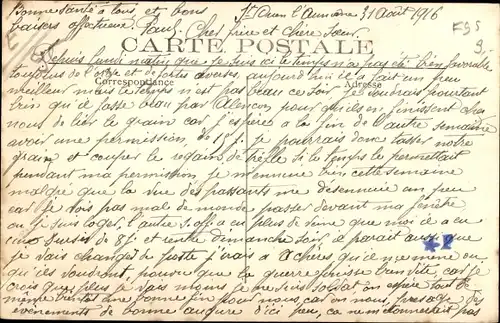 Bonne santé à tous et bons
St Ouen l'Aumone 31 Août 1916
baisers affectueux Paul. Cher frère et Chère Sœur.
F95
9.
CARTE POSTALE
Correspondance
Adresse
Depuis lundi matin que je suis ici le temps n'a pas été bien favorable
toujours de l'orage et de fortes averses, aujourd'hui il a fait un peu
meilleur mais le temps n'est pas beau ce soir, je voudrais pourtant
bien qu'il fasse beau par Alençon pour qu'ils en finissent chez
nous de lier le grain car j'espère à la fin de l'autre semaine
avoir une permission de 15 j. je pourrais donc tasser notre
grain et couper le regain de trèfle si le temps le permettait
pendant ma permission, je m'ennuie bien cette semaine
malgré que la vue des passants me désennuie un peu
car je vois pas mal de monde passer devant ma fenêtre
où je suis loger, l'autre
de 8 j. et rentre dimanche soir, il parait aussi que
je vais changer de poste j'irais à Achères, qu'il me mène où
qu'ils voudront, pourvu que la guerre finisse bien vite, car je
crois que plus je
soldat on espère tout de
même bientôt une bonne fin pour nous car on nous présage des
évènements de bonne augure d'ici peu, ça